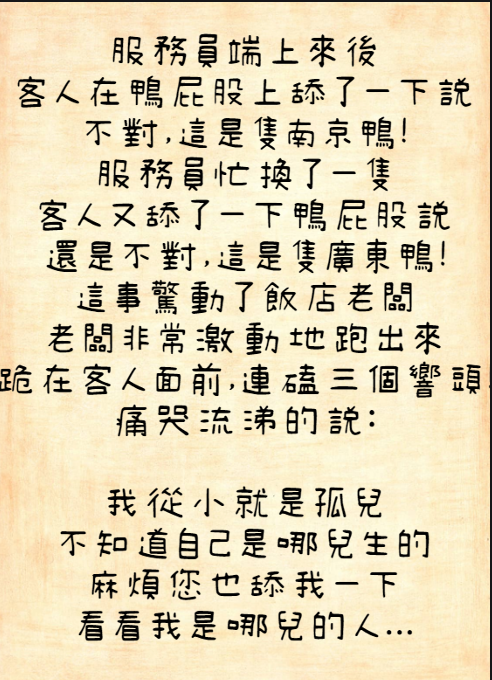 服務員端上來後
客人在鴨屁股上舔了一下説
不對,這是隻南京鴨!
服務員忙換了一隻
客人又舔了一下鴨屁股説
還是不對,這是隻廣東鴨!
這事驚動了飯店老闆
老闆非常激動地跑出來
跪在客人面前,連磕三個響頭
痛哭流涕的説:
我從小就是孤兒
不知道自己是哪兒生的
麻煩您也舔我一下
看看我是哪兒的人...